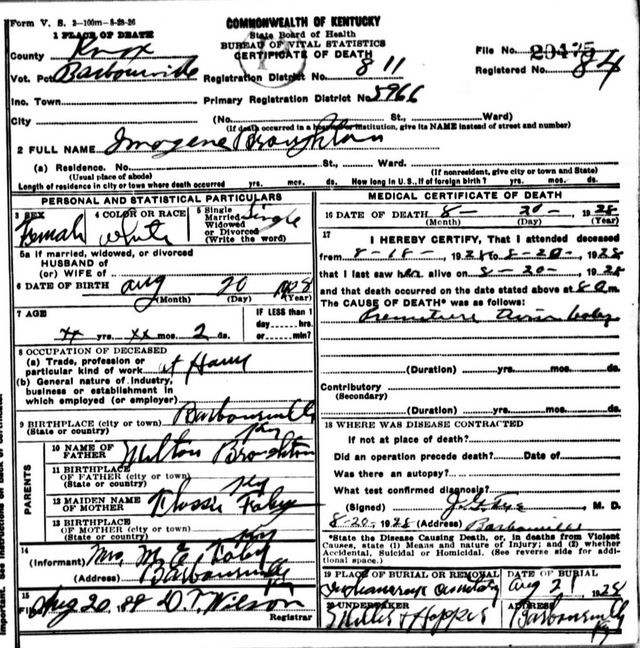 Form V. S. 2-100m-8-28-26
COMMONWEALTH OF KENTUCKY
State Board of Health
BUREAU OF VITAL STATISTICS
CERTIFICATE OF DEATH
1 PLACE OF DEATH
County Knox
Vot. Pct Barbourville
Inc. Town
City
File No. 20475
Registered No. 84
Registration District No. 811
Primary Registration District No. 5966
(No. St., Ward)
(If death occurred in a hospital or institution, give its NAME instead of street and number)
2 FULL NAME Imogene Broughton
(a) Residence. No. St., Ward.
(Usual place of abode) (If nonresident, give city or town and State)
Length of residence in city or town where death occurred yrs. mos. ds. How long in U. S., if of foreign birth? yrs. mos. ds.
PERSONAL AND STATISTICAL PARTICULARS
3 SEX Female
4 COLOR OR RACE white
5 Single Married Widowed or Divorced (Write the word) Single
5a If married, widowed, or divorced
HUSBAND of
(or) WIFE of
6 DATE OF BIRTH Aug 20
(Month) (Day) (Year)
7 AGE
xx yrs. xx mos. 2 ds.
IF LESS than 1
day hrs.
or min?
8 OCCUPATION OF DECEASED
(a) Trade, profession or
particular kind of work at Home
(b) General nature of Industry,
business or establishment in
which employed (or employer)
9 BIRTHPLACE (city or town) Barbourville
(State or country) Ky
PARENTS
10 NAME OF FATHER Milton Broughton
11 BIRTHPLACE OF FATHER (city or town)
(State or country) Ky
12 MAIDEN NAME OF MOTHER
13 BIRTHPLACE OF MOTHER (city or town)
(State or country) Ky
14 (Informant) Mrs. M. E.
(Address) Barbourville Ky
15 Filed Aug 20 D. T. Wilson
Registrar
MEDICAL CERTIFICATE OF DEATH
16 DATE OF DEATH 8- 20- 1928
(Month) (Day) (Year)
17 I HEREBY CERTIFY, That I attended deceased
from 8-18- 1928 to 8-20- 1928
that I last saw her alive on 8-20- 1928
and that death occurred on the date stated above at 8 a m.
The CAUSE OF DEATH* was as follows:
Premature
(Duration) yrs. mos. ds.
Contributory
(Secondary)
(Duration) yrs. mos. ds.
18 WHERE WAS DISEASE CONTRACTED
If not at place of death?
Did an operation precede death? Date
Was there an autopsy?
What test confirmed diagnosis?
(Signed) M. D.
8-20- 1928 (Address) Barbourville
*State the Disease Causing Death, or, in deaths from Violent
Causes, state (1) Means and nature of Injury; and (2) whether
Accidental, Suicidal or Homicidal. (See reverse side for addi-
tional space.)
19 PLACE OF BURIAL OR REMOVAL
Cemetery
DATE OF BURIAL
Aug 21 1928
20 UNDERTAKER
Miller & Hopper
ADDRESS
Barbourville Ky